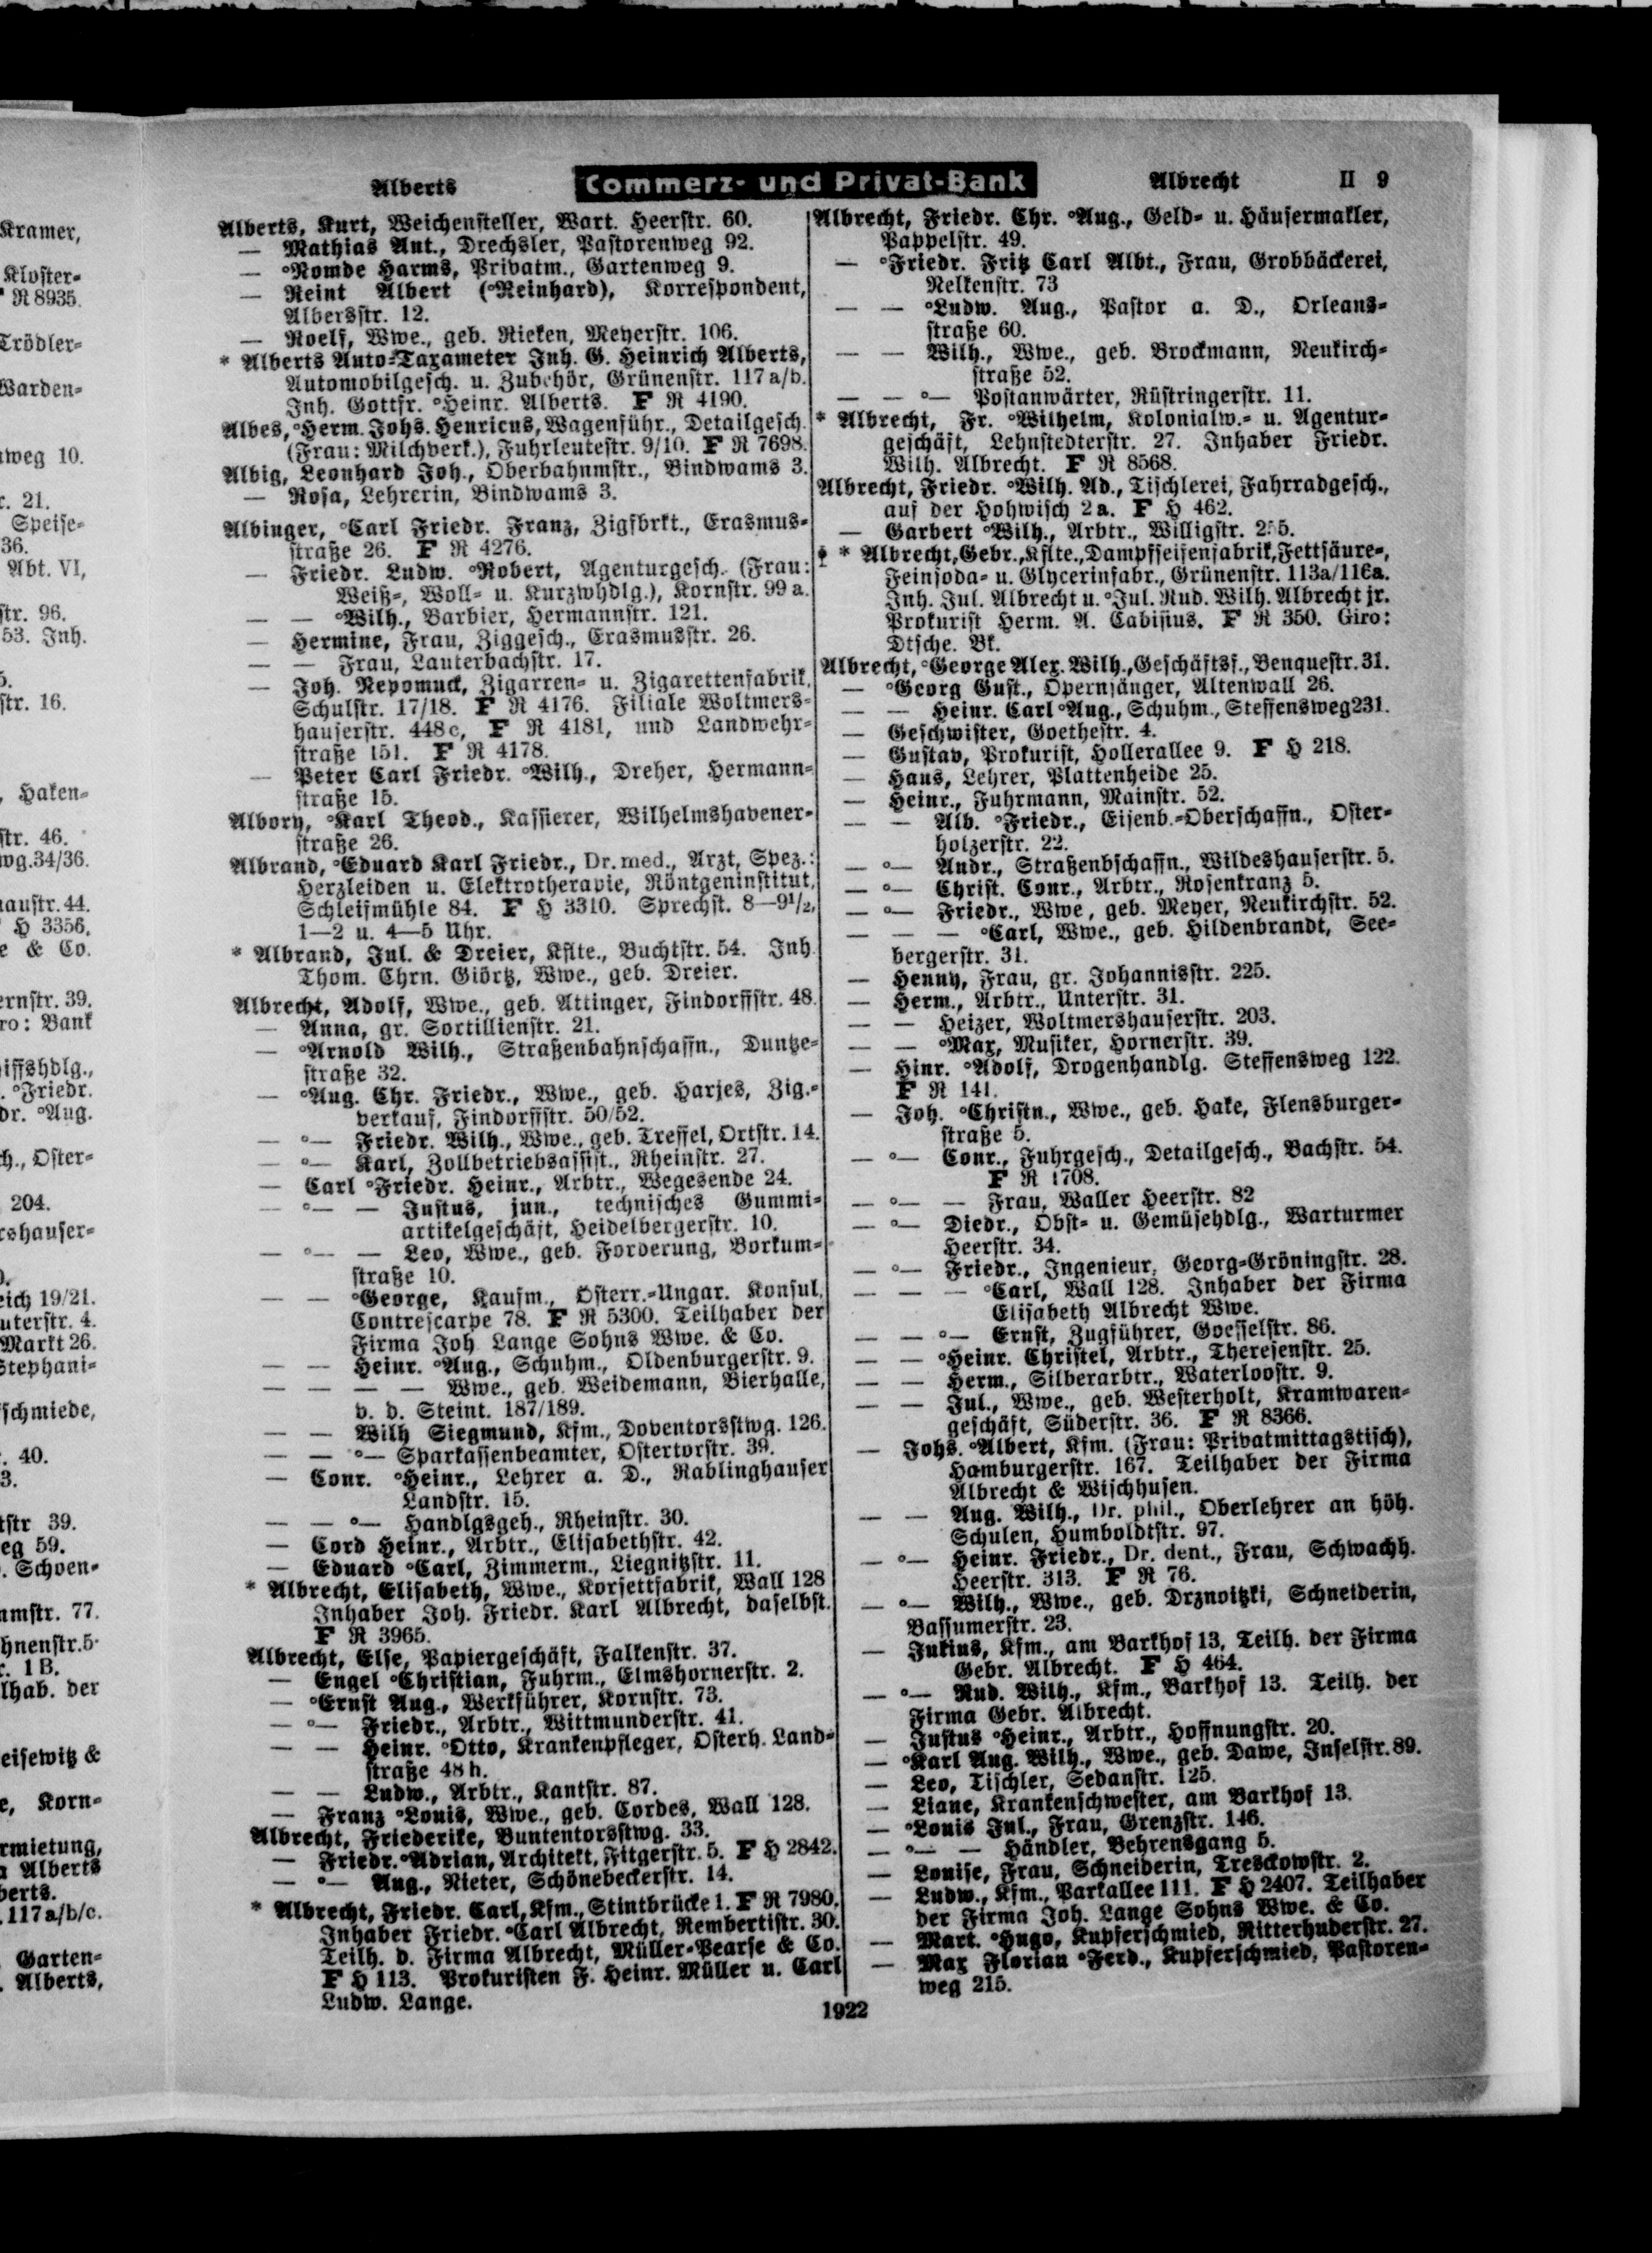 Alberts
Commerz- und Privat-Bank
Albrecht
II 9
Kramer,
Kloster-
R 8935.
Trödler-
Warden-
weg 10.
r. 21.
Speise-
36.
Abt. VI,
str. 96.
53. Inh.
5.
str. 16.
, Haken-
str. 46.
wg. 34/36.
austr. 44.
H 3356.
e & Co.
ernstr. 39.
ro: Bank
iffshdlg.,
. °Friedr.
dr. °Aug.
ch., Oster-
204.
rshauser-
eich 19/21.
uterstr. 4.
Markt 26.
Stephani-
schmiede,
. 40.
3.
tstr 39.
eg 59.
. Schoen-
mmstr. 77.
hnenstr. 5.
r. 1 B.
lhab. der
eisewitz &
e, Korn-
rmietung,
a Alberts
berts.
. 117 a/b/c.
Garten-
. Alberts,
Alberts, Kurt, Weichensteller, Wart. Heerstr. 60.
— Mathias Ant., Drechsler, Pastorenweg 92.
— °Romde Harms, Privatm., Gartenweg 9.
— Reint Albert (°Reinhard), Korrespondent,
Albersstr. 12.
— Roelf, Wwe., geb. Rieken, Meyerstr. 106.
* Alberts Auto-Taxameter Inh. G. Heinrich Alberts,
Automobilgesch. u. Zubehör, Grünenstr. 117 a/b.
Inh. Gottfr. °Heinr. Alberts. F R 4190.
Albes, °Herm. Johs. Henricus, Wagenführ., Detailgesch.
(Frau: Milchverk.), Fuhrleutestr. 9/10. F R 7698.
Albig, Leonhard Joh., Oberbahnmstr., Bindwams 3.
— Rosa, Lehrerin, Bindwams 3.
Albinger, °Carl Friedr. Franz, Zigfbrkt., Erasmus-
straße 26. F R 4276.
— Friedr. Ludw. °Robert, Agenturgesch. (Frau:
Weiß-, Woll- u. Kurzwhdlg.), Kornstr. 99 a.
— — °Wilh., Barbier, Hermannstr. 121.
— Hermine, Frau, Ziggesch., Erasmusstr. 26.
— — Frau, Lauterbachstr. 17.
— Joh. Nepomuck, Zigarren- u. Zigarettenfabrik,
Schulstr. 17/18. F R 4176. Filiale Woltmers-
hauserstr. 448 c, F R 4181, und Landwehr-
straße 151. F R 4178.
— Peter Carl Friedr. °Wilh., Dreher, Hermann-
straße 15.
Albory, °Karl Theod., Kassierer, Wilhelmshavener-
straße 26.
Albrand, °Eduard Karl Friedr., Dr. med., Arzt, Spez.:
Herzleiden u. Elektrotherapie, Röntgeninstitut,
Schleifmühle 84. F H 3310. Sprechst. 8—9½,
1—2 u. 4—5 Uhr.
* Albrand, Jul. & Dreier, Kflte., Buchtstr. 54. Inh
Thom. Chrn. Giörtz, Wwe., geb. Dreier.
Albrecht, Adolf, Wwe., geb. Attinger, Findorffstr. 48.
— Anna, gr. Sortillienstr. 21.
— °Arnold Wilh., Straßenbahnschaffn., Duntze-
straße 32.
— °Aug. Chr. Friedr., Wwe., geb. Harjes, Zig.-
verkauf, Findorffstr. 50/52.
— °— Friedr. Wilh., Wwe., geb. Treffel, Ortstr. 14.
— °— Karl, Zollbetriebsassist., Rheinstr. 27.
— Carl °Friedr. Heinr., Arbtr., Wegesende 24.
— °— — Justus, jun., technisches Gummi-
artikelgeschäft, Heidelbergerstr. 10.
— °— — Leo, Wwe., geb. Forderung, Borkum-
straße 10.
— — °George, Kaufm., Österr.-Ungar. Konsul,
Contrescarpe 78. F R 5300. Teilhaber der
Firma Joh Lange Sohns Wwe. & Co.
— — Heinr. °Aug., Schuhm., Oldenburgerstr. 9.
— — — — Wwe., geb. Weidemann, Bierhalle,
v. d. Steint. 187/189.
— — Wilh Siegmund, Kfm., Doventorsstwg. 126.
— — °— Sparkassenbeamter, Ostertorstr. 39.
— Conr. °Heinr., Lehrer a. D., Rablinghauser
Landstr. 15.
— — °— Handlgsgeh., Rheinstr. 30.
— Cord Heinr., Arbtr., Elisabethstr. 42.
— Eduard °Carl, Zimmerm., Liegnitzstr. 11.
* Albrecht, Elisabeth, Wwe., Korsettfabrik, Wall 128
Inhaber Joh. Friedr. Karl Albrecht, daselbst.
F R 3965.
Albrecht, Else, Papiergeschäft, Falkenstr. 37.
— Engel °Christian, Fuhrm., Elmshornerstr. 2.
— °Ernst Aug., Werkführer, Kornstr. 73.
— °— Friedr., Arbtr., Wittmunderstr. 41.
— — Heinr. °Otto, Krankenpfleger, Osterh. Land-
straße 48 h.
— — Ludw., Arbtr., Kantstr. 87.
— Franz °Louis, Wwe., geb. Cordes, Wall 128.
Albrecht, Friederike, Buntentorsstwg. 33.
— Friedr. °Adrian, Architekt, Fitgerstr. 5. F H 2842.
— °— Aug., Nieter, Schönebeckerstr. 14.
* Albrecht, Friedr. Carl, Kfm., Stintbrücke 1. F R 7980.
Inhaber Friedr. °Carl Albrecht, Rembertistr. 30.
Teilh. d. Firma Albrecht, Müller-Pearse & Co.
F H 113. Prokuristen F. Heinr. Müller u. Carl
Ludw. Lange.
Albrecht, Friedr. Chr. °Aug., Geld- u. Häusermakler,
Pappelstr. 49.
— °Friedr. Fritz Carl Albt., Frau, Grobbäckerei,
Nelkenstr. 73
— — °Ludw. Aug., Pastor a. D., Orleans-
straße 60.
— — Wilh., Wwe., geb. Brockmann, Neukirch-
straße 52.
— — °— Postanwärter, Rüstringerstr. 11.
* Albrecht, Fr. °Wilhelm, Kolonialw.- u. Agentur-
geschäft, Lehnstedterstr. 27. Inhaber Friedr.
Wilh. Albrecht. F R 8568.
Albrecht, Friedr. °Wilh. Ad., Tischlerei, Fahrradgesch.,
auf der Hohwisch 2 a. F H 462.
— Garbert °Wilh., Arbtr., Willigstr.
* Albrecht, Gebr., Kflte., Dampfseifenfabrik, Fettsäure-,
Feinsoda- u. Glycerinfabr., Grünenstr. 113a/116a.
Inh. Jul. Albrecht u. °Jul. Rud. Wilh. Albrecht jr.
Prokurist Herm. A. Cabisius. F R 350. Giro:
Dtsche. Bk.
Albrecht, °George Alex. Wilh., Geschäftsf., Benquestr. 31.
— °Georg Gust., Opernsänger, Altenwall 26.
— — Heinr. Carl °Aug., Schuhm., Steffensweg 231.
— Geschwister, Goethestr. 4.
— Gustav, Prokurist, Hollerallee 9. F H 218.
— Hans, Lehrer, Plattenheide 25.
— Heinr., Fuhrmann, Mainstr. 52.
— — Alb. °Friedr., Eisenb.-Oberschaffn., Oster-
holzerstr. 22.
— °— Andr., Straßenbschaffn., Wildeshauserstr. 5.
— °— Christ. Conr., Arbtr., Rosenkranz 5.
— °— Friedr., Wwe, geb. Meyer, Neukirchstr. 52.
— — — °Carl, Wwe., geb. Hildenbrandt, See-
bergerstr. 31.
— Henny, Frau, gr. Johannisstr. 225.
— Herm., Arbtr., Unterstr. 31.
— — Heizer, Woltmershauserstr. 203.
— — °Max, Musiker, Hornerstr. 39.
— Hinr. °Adolf, Drogenhandlg. Steffensweg 122.
F R 141.
— Joh. °Christn., Wwe., geb. Hake, Flensburger-
straße 5.
— °— Conr., Fuhrgesch., Detailgesch., Bachstr. 54.
F R 1708.
— °— — Frau, Waller Heerstr. 82
— °— Diedr., Obst- u. Gemüsehdlg., Warturmer
Heerstr. 34.
— °— Friedr., Ingenieur, Georg-Gröningstr. 28.
— — — °Carl, Wall 128. Inhaber der Firma
Elisabeth Albrecht Wwe.
— — °— Ernst, Zugführer, Goesselstr. 86.
— — °Heinr. Christel, Arbtr., Theresenstr. 25.
— — Herm., Silberarbtr., Waterloostr. 9.
— — Jul., Wwe., geb. Westerholt, Kramwaren-
geschäft, Süderstr. 36. F R 8366.
— Johs. °Albert, Kfm. (Frau: Privatmittagstisch),
Hamburgerstr. 167. Teilhaber der Firma
Albrecht & Wischhusen.
— — Aug. Wilh., Dr. phil., Oberlehrer an höh.
Schulen, Humboldtstr. 97.
— °— Heinr. Friedr., Dr. dent., Frau, Schwachh.
Heerstr. 313. F R 76.
— °— Wilh., Wwe., geb. Drznoitzki, Schneiderin,
Bassumerstr. 23.
— Julius, Kfm., am Barkhof 13, Teilh. der Firma
Gebr. Albrecht. F H 464.
— °— Rud. Wilh., Kfm., Barkhof 13. Teilh. der
Firma Gebr. Albrecht.
— Justus °Heinr., Arbtr., Hoffnungstr. 20.
— °Karl Aug. Wilh., Wwe., geb. Dawe, Inselstr. 89.
— Leo, Tischler, Sedanstr. 125.
— Liane, Krankenschwester, am Barkhof 13.
— °Louis Jul., Frau, Grenzstr. 146.
— °— — Händler, Behrensgang 5.
— Louise, Frau, Schneiderin, Tresckowstr. 2.
— Ludw., Kfm., Parkallee 111. F H 2407. Teilhaber
der Firma Joh. Lange Sohns Wwe. & Co.
— Mart. °Hugo, Kupferschmied, Ritterhuderstr. 27.
— Max Florian °Ferd., Kupferschmied, Pastoren-
weg 215.
1922